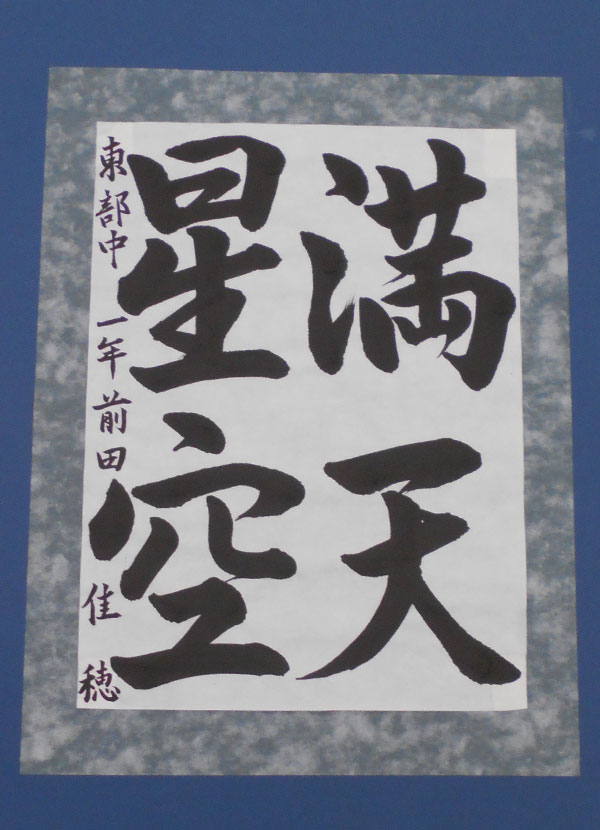 満天
星空
東部中 一年 前田 佳穂